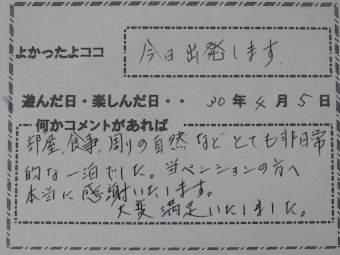 よかったよココ 今日出発します。
遊んだ日・楽しんだ日・・ 30年4月5日
何かコメントがあれば
部屋、食事、周りの自然など、とても非日常
的な一泊でした。当ペンションの方へ
本当に感謝いたします。
大変満足いたしました。